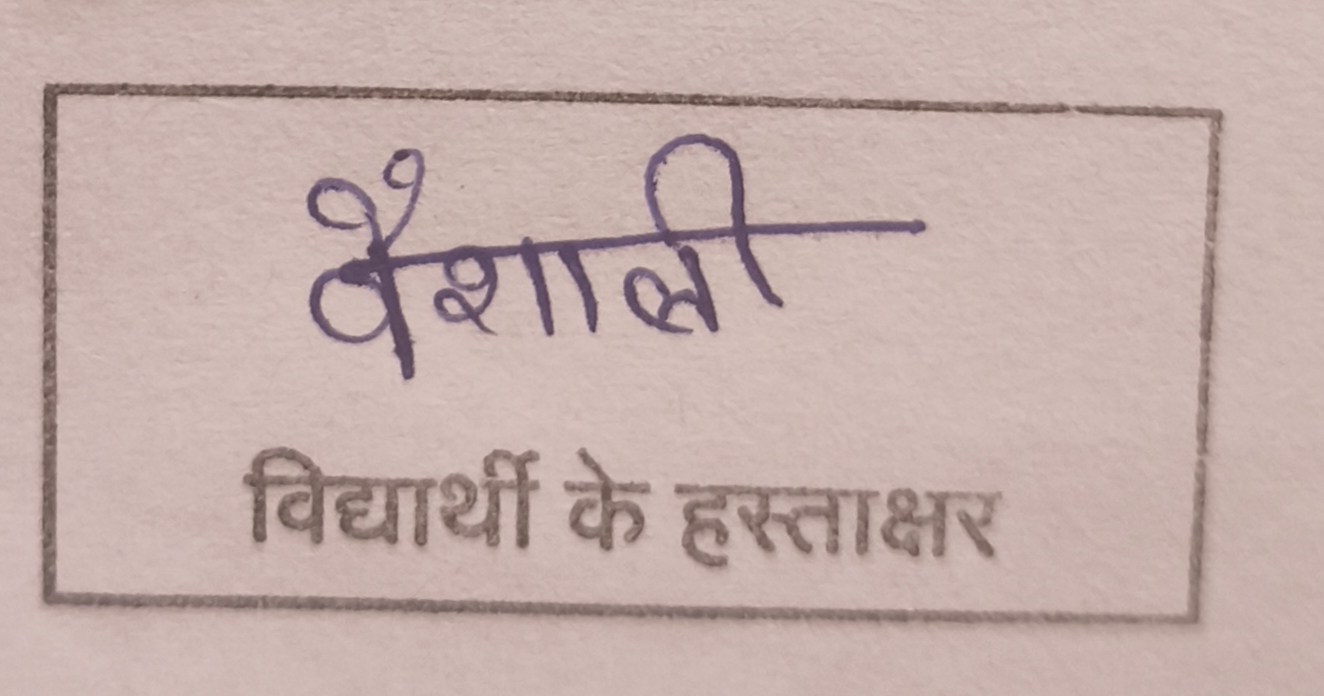 वैशाली
विद्यार्थी के हस्ताक्षर